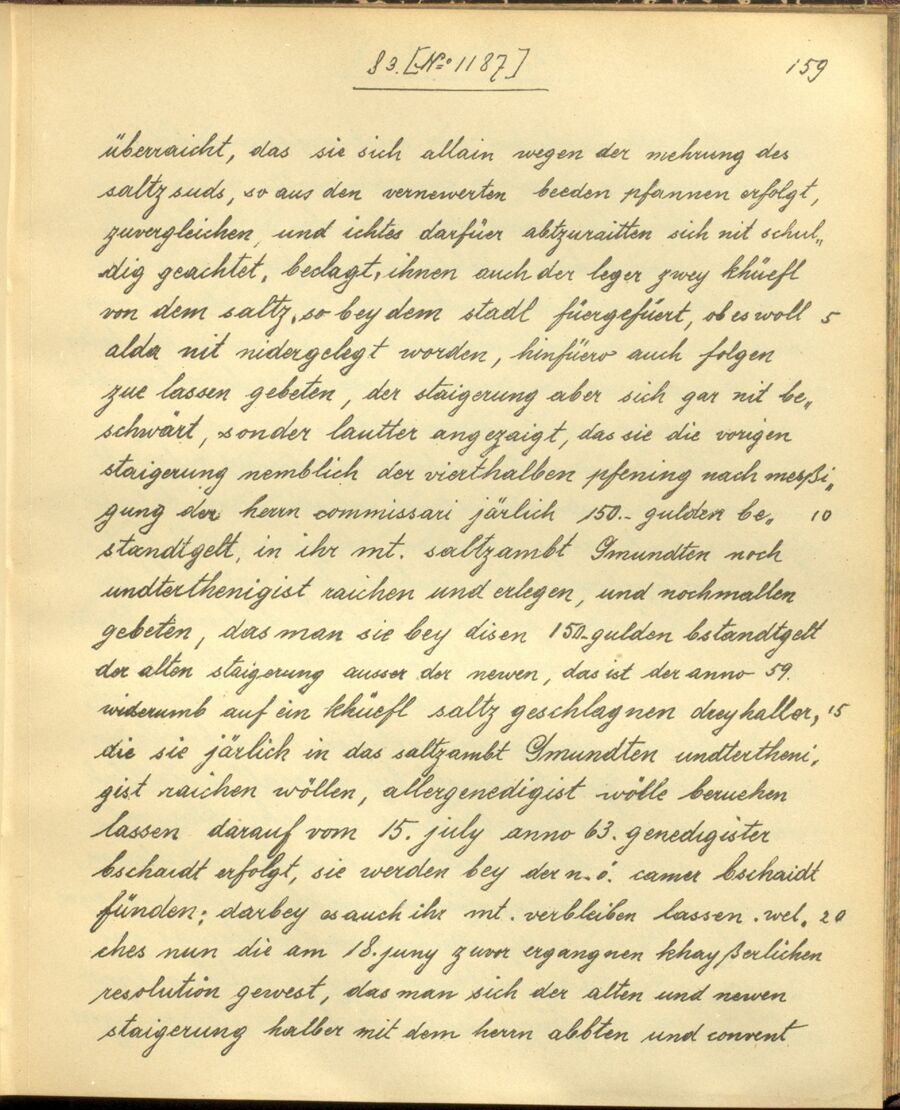 83. [No 1187]
159
überraicht, das sie sich allain wegen der mehrung des
saltzsuds, so aus den vernewerten beeden pfannen erfolgt,
zuvergleichen, und ichtes darfüer abtzuraitten sich nit schul„
dig geachtet, beclagt, ihnen auch der leger zwey khüefl
von dem saltz, so bey dem stadl füergefüert, ob es woll 5
alda nit nidergelegt worden, hinfüero auch folgen
zue lassen gebeten, der staigerung aber sich gar nit be„
schwärt, sonder lautter angezaigt, das sie die vorigen
staigerung nemblich der vierthalben pfening nach mesßi„
gung der herrn commissari järlich 150.- gulden be„ 10
standtgelt, in ihr mt. saltzambt Gmundten noch
undterthenigist raichen und erlegen, und nochmallen
gebeten, das man sie bey disen 150.- gulden bstandtgelt
der alten staigerung ausser der newen, das ist der anno 59.
widerumb auf ein khüefl saltz geschlagnen drey haller, 15
die sie järlich in das saltzambt Gmundten undtertheni„
gist raichen wöllen, allergenedigist wölle beruehen
lassen darauf vom 15. july anno 63. genedigister
bschaidt erfolgt, sie werden bey der n. ö. camer bschaidt
fünden; darbey es auch ihr mt. verbleiben lassen. wel„ 20
ches nun die am 18. juny zuvor ergangnen khayßerlichen
resolution gewest, das man sich der alten und newen
staigerung halber mit dem herrn abbten und convent